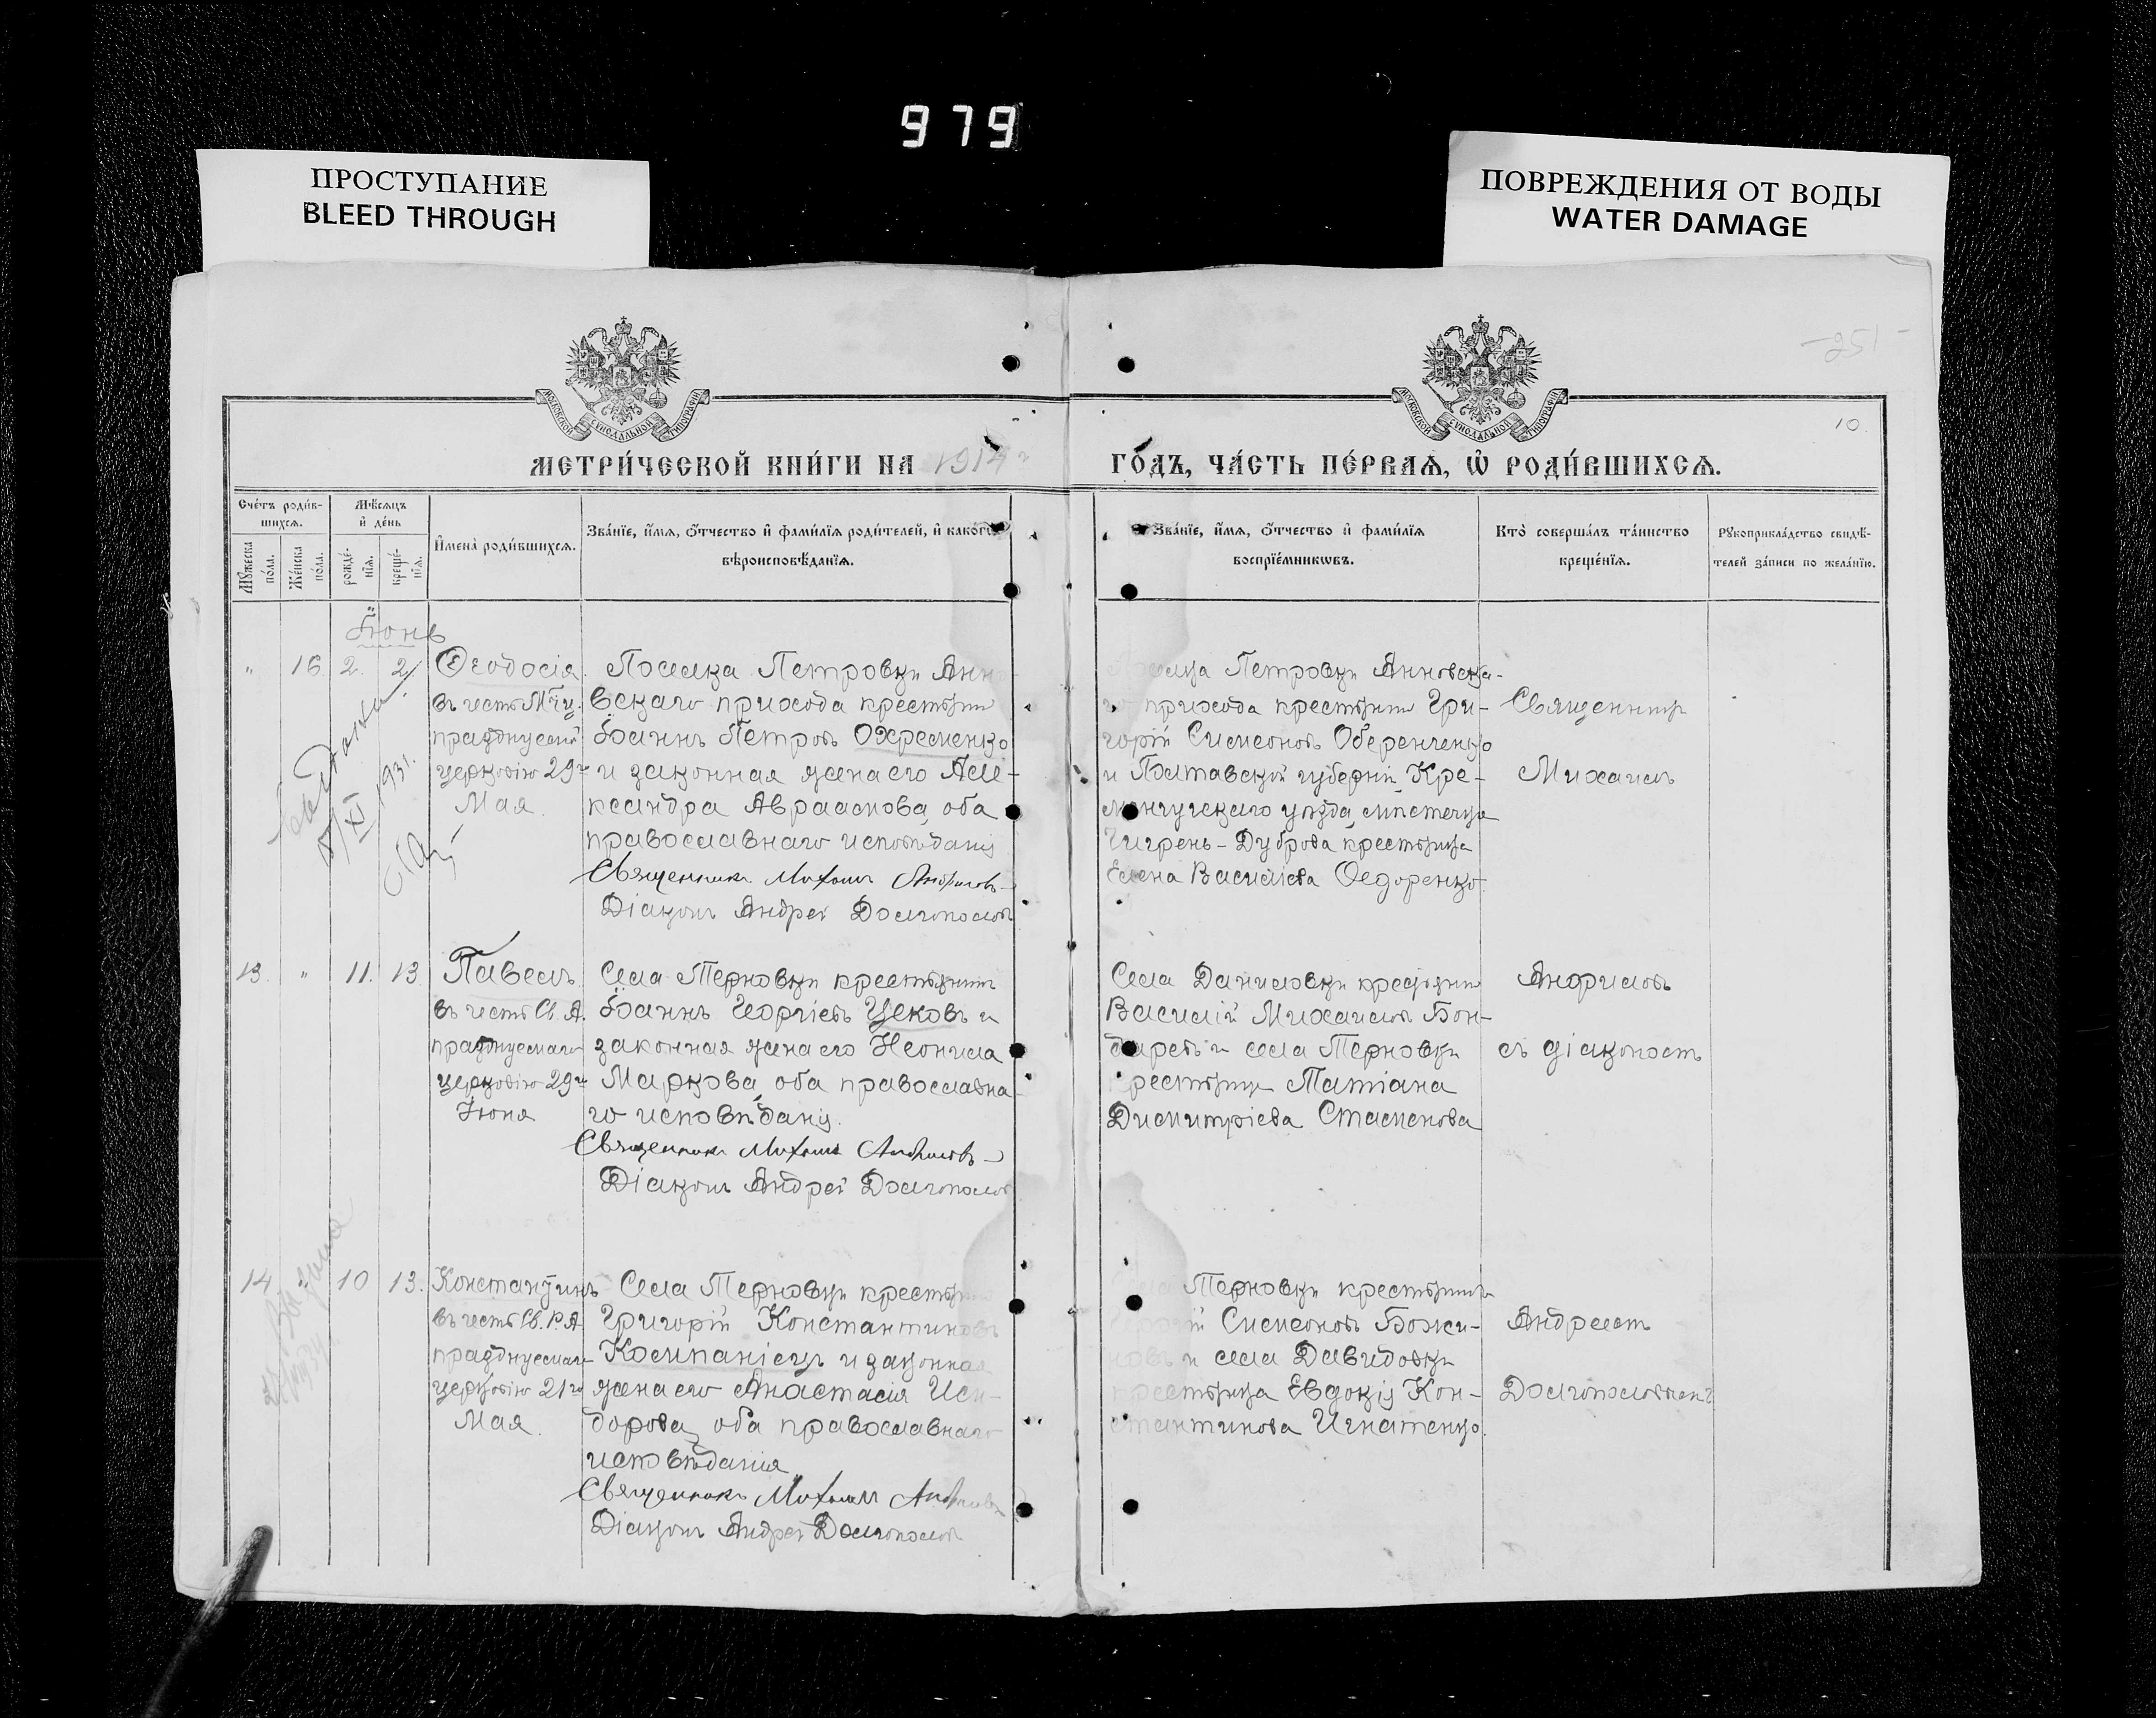 979
ПРОСТУПАНИЕ
BLEED THROUGH
ПОВРЕЖДЕНИЯ ОТ ВОДЫ
WATER DAMAGE
-251-
10.
МОСКОВСКОЙ СѴНОДАЛЬНОЙ ТИПОГРАФІИ
МОСКОВСКОЙ СѴНОДАЛЬНОЙ ТИПОГРАФІИ
МЕТРИ́ЧЕСКОЙ КНИ́ГИ НА 1914 г
ГО́ДЪ, ЧА́СТЬ ПЕ́РВАѦ, Ѡ҆ РОДИ́ВШИХСѦ.
Сче́тъ роди́в-
шихсѧ.
Мꙋ́жеска по́ла.
Же́нска по́ла.
Мѣ́сѧцъ
и҆ де́нь
рожде́-
нїѧ.
креще́-
нїѧ.
И҆мена̀ роди́вшихсѧ.
Зва́нїе, и҆́мѧ, ѻ҆́тчество и҆ фами́лїѧ роди́телей, и҆ како́гѡ
вѣроисповѣ́данїѧ.
Зва́нїе, и҆́мѧ, ѻ҆́тчество и҆ фами́лїѧ
воспрїе́мникѡвъ.
Кто̀ соверша́лъ та́инство
креще́нїѧ.
Рꙋкоприкла́дство свидѣ́-
телей за́писи по жела́нїю.
Іюнь
" 16. 2. 2.
Ѳеодосія
въ честь Мц.
празднуемой
церковію 29го
Мая.
Поселка Петровки Анно
вскаго прихода крестьянинъ
Іоаннъ Петровъ Охременко
и законная жена его Але-
ксандра Авраамова, оба
православнаго исповѣданія
Священникъ Михаилъ Анфиловъ
Діаконъ Андрей Долгополовъ
Петровки Анновска-
прихода крестьянинъ Гри-
горій Симеоновъ
и Полтавской губерніи, Кре-
менчугскаго уѣзда, мѣстечка
Дуброва крестьянка
Елена Василіева Ѳедоренко.
Священникъ
Михаилъ
XI 1931.
13. " 11. 13.
Павелъ
въ честь Св. А.
празднуемаго
церковію 29го
Іюня
Села Терновки крестьянинъ
Іоаннъ Георгіевъ Цековъ и
законная жена его Неонила
Маркова, оба православна-
го исповѣданія.
Священникъ Михаилъ Анфиловъ
Діаконъ Андрей Долгополовъ
Села Даниловки крестьянинъ
Василій Михаиловъ Бон-
даревъ и села Терновки
крестьянка Татіана
Димитріева Стаменова
Анфиловъ
съ діакономъ
14. 10 13.
Константинъ
въ честь Св. Р. А.
празднуемаго
церковію 21го
Мая.
Села Терновки крестьянинъ
Григорій Константиновъ
Компаніецъ и законная
жена его Анастасія Иси-
дорова, оба православнаго
исповѣданія
Священникъ Михаилъ Анфиловъ
Діаконъ Андрей Долгополовъ
Терновки крестьянинъ
Симеоновъ Божи-
новъ и села Давидовки
крестьянка Евдокія Кон-
стантинова Игнатенко.
Андреемъ
Долгополовымъ